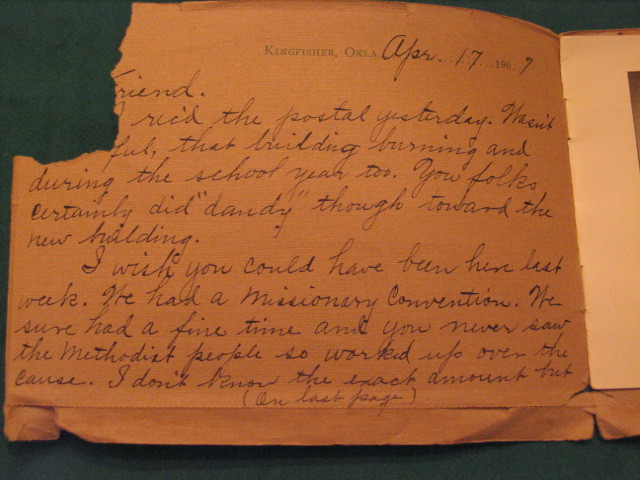 KINGFISHER, OKLA. Apr. 17 1907
riend.
I rec'd the postal yesterday. Wasn't
ful, that building burning and
during the school year too. You folks
certainly did "dandy" though toward the
new building.
I wish you could have been here last
week. We had a Missionary Convention. We
sure had a fine time and you never saw
the Methodist people so worked up over the
cause. I don't know the exact amount but
(On last page)